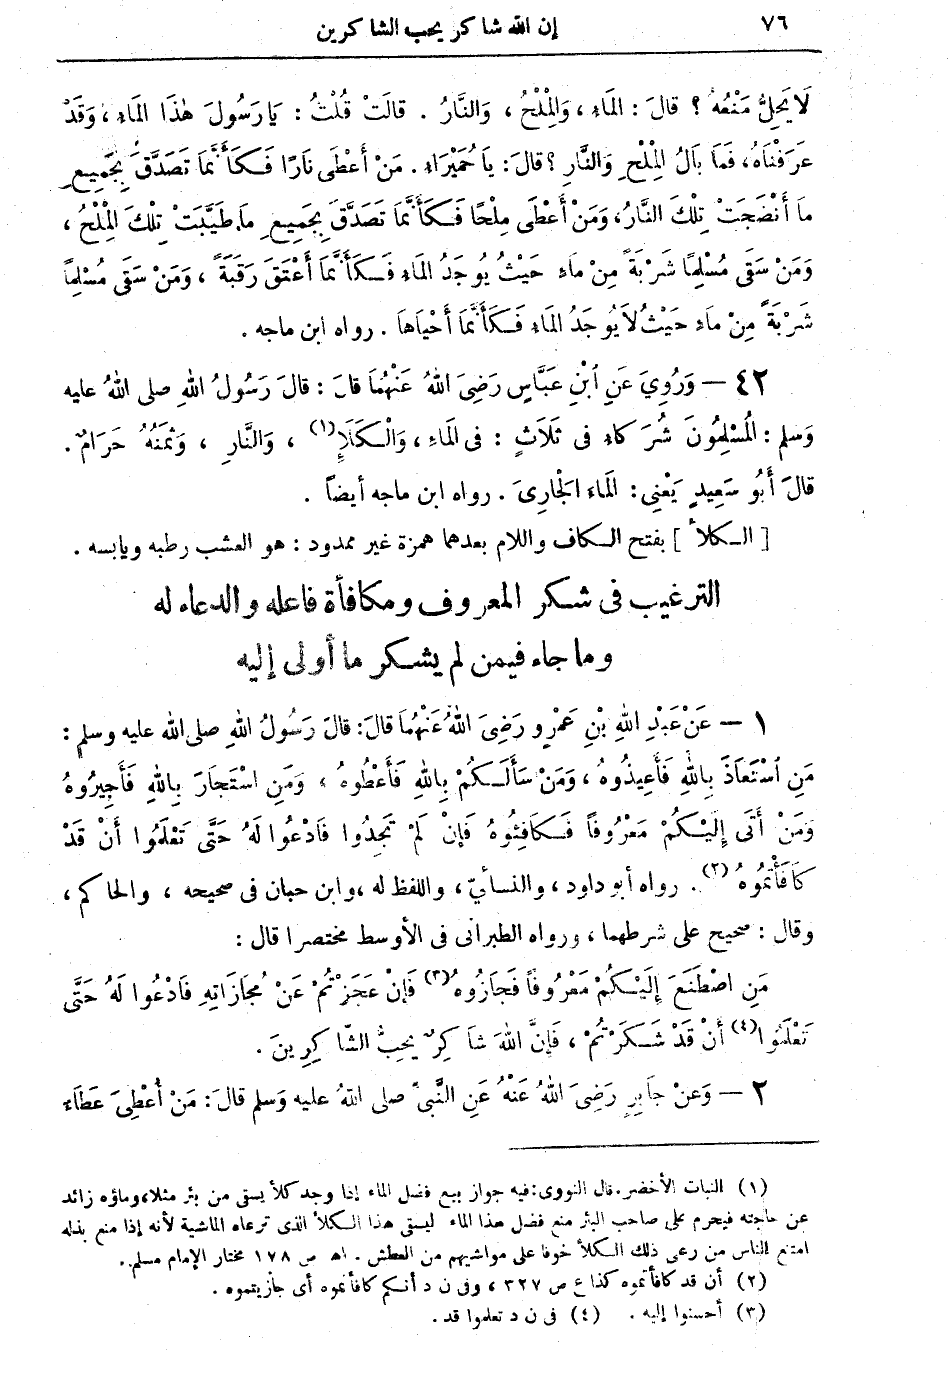 ٧٦ إن الله شاكر يحب الشاكرين
لَا يَحِلُّ مَنْعُهُ ؟ قالَ : المَاءِ ، وَالْمِلْحُ ، وَالنَّارُ . قالَتْ قُلْتُ : يَا رَسُولَ هٰذَا المَاءِ ، وَقَدْ
عَرَفْنَاهُ ، فَمَا بَالُ الْمِلْحِ وَالنَّارِ ؟ قالَ : يَا حُمَيْرَاءِ . مَنْ أَعْطَى نَارًا فَكَأَنَّمَا تَصَدَّقَ بِجَمِيعِ
ما أَنْضَجَتْ تِلْكَ النَّارُ ، وَمَنْ أَعْطَى مِلْحًا فَكَأَنَّمَا تَصَدَّقَ بِجَمِيعِ مَا طَيَّبَتْ تِلْكَ الْمِلْحُ ،
وَمَنْ سَقَى مُسْلِمًا شَرْبَةً مِنْ مَاءٍ حَيْثُ يُوجَدُ المَاءِ فَكَأَنَّمَا أَعْتَقَ رَقَبَةً ، وَمَنْ سَقَى مُسْلِمًا
شَرْبَةً مِنْ مَاءٍ حَيْثُ لَا يُوجَدُ المَاءِ فَكَأَنَّمَا أَحْيَاهَا . رواه ابن ماجه .
٤٢ — وَرُوِيَ عَنِ ابْنِ عَبَّاسٍ رَضِيَ اللهُ عَنْهُمَا قالَ : قالَ رَسُولُ اللهِ صلى اللهُ عليه
وَسلم : الْمُسْلِمُونَ شُرَكاَءِ فى ثَلَاثٍ : فى المَاءِ ، وَالْكَلَإِ(١) ، وَالنَّارِ ، وَثَمَنُهُ حَرَامٌ .
قالَ أَبُو سَعِيدٍ يَعْنِي : المَاءَ الْجَارِىَ . رواه ابن ماجه أيضاً .
[ الكلأ ] بفتح الكاف واللام بعدهما همزة غير ممدود : هو العشب رطبه ويابسه .
الترغيب فى شكر المعروف ومكافأة فاعله والدعاء له
وما جاء فيمن لم يشكر ما أولى إليه
١ — عَنْ عَبْدِ اللهِ بْنِ عَمْرٍو رَضِيَ اللهُ عَنْهُمَا قالَ : قالَ رَسُولُ اللهِ صلى الله عليه وسلم :
مَنِ اسْتَعَاذَ بِاللهِ فَأَعِيذُوهُ ، وَمَنْ سَأَلَكُمْ بِاللهِ فَأَعْطُوهُ ، وَمَنِ اسْتَجَارَ بِاللهِ فَأَجِيرُوهُ
وَمَنْ أَتَى إِلَيْكُمْ مَعْرُوفًا فَكَافِئُوهُ فَإِنْ لَمْ تَجِدُوا فَادْعُوا لَهُ حَتَّى تَعْلَمُوا أَنْ قَدْ
كَافَأْتُمُوهُ(٢) . رواه أبو داود ، والنسائىّ ، واللفظ له ، وابن حبان فى صحيحه ، والحاكم ،
وقال : صحيح على شرطهما ، ورواه الطبرانى فى الأوسط مختصرا قال :
مَنِ اصْطَنَعَ إِلَيْكُمْ مَعْرُوفًا فَجَازُوهُ(٣) فَإِنْ عَجَزْتُمْ عَنْ مُجَازَاتِهِ فَادْعُوا لَهُ حَتَّى
تَعْلَمُوا(٤) أَنْ قَدْ شَكَرْتُمْ ، فَإِنَّ اللهَ شَاكِرٌ يُحِبُّ الشَّاكِرِينَ .
٢ — وَعَنْ جَابِرٍ رَضِيَ اللهُ عَنْهُ عَنِ النَّبِىِّ صلى اللهُ عليه وَسلم قالَ : مَنْ أُعْطِىَ عَطَاءِ
(١) النبات الأخضر . قال النووى : فيه جواز بيع فضل الماء إذا وجد كلأ يسقى من بئر مثلا ، وماؤه زائد
عن حاجته فيحرم على صاحب البئر منع فضل هذا الماء ليسقى هذا الكلأ الذى ترعاه الماشية لأنه إذا منع بذله
امتنع الناس من رعى ذلك الكلأ خوفا على مواشيهم من العطش . اهـ ص ١٧٨ مختار الإمام مسلم .
(٢) أن قد كافأتموه كذا ع ص ٣٢٧ ، وفى ن د أنكم كافأتموه أى جازيتموه .
(٣) أحسنوا إليه . (٤) فى ن د تعلموا قد .